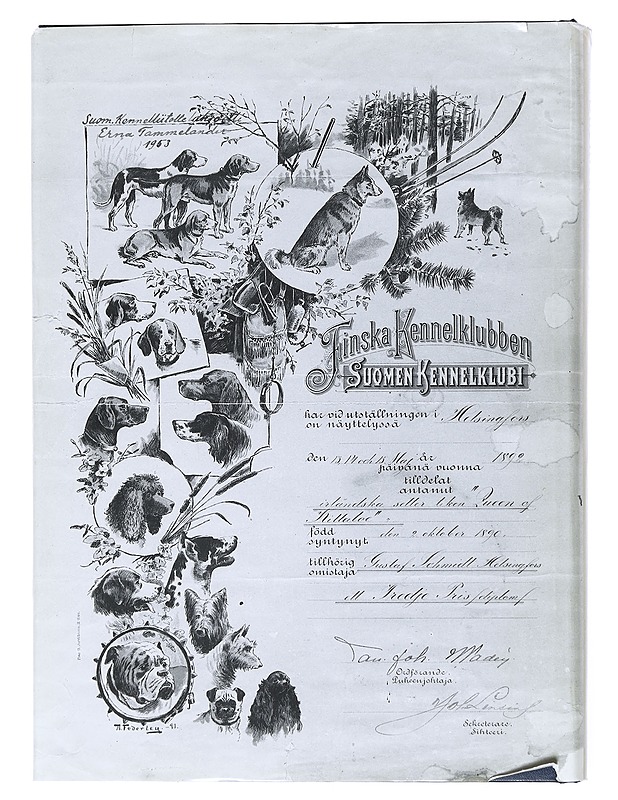 Suom. Kennelliitolle
Erna Tammelander
1953
Finska Kennelklubben
SUOMEN KENNELKLUBI
har vid utställningen i Helsingfors
on näyttelyssä
den 13, 14 och 15 Maj år 1892
päivänä vuonna
tilldelat
antanut "
irländska setter tiken Queen of
född den 2 oktober 1890.
syntynyt
tillhörig Gustaf Schmidt Helsingfors
omistaja
Tredje Pris /diplom/
Joh.
Ordförande
Puheenjohtaja
Sekreterare.
Sihteeri.